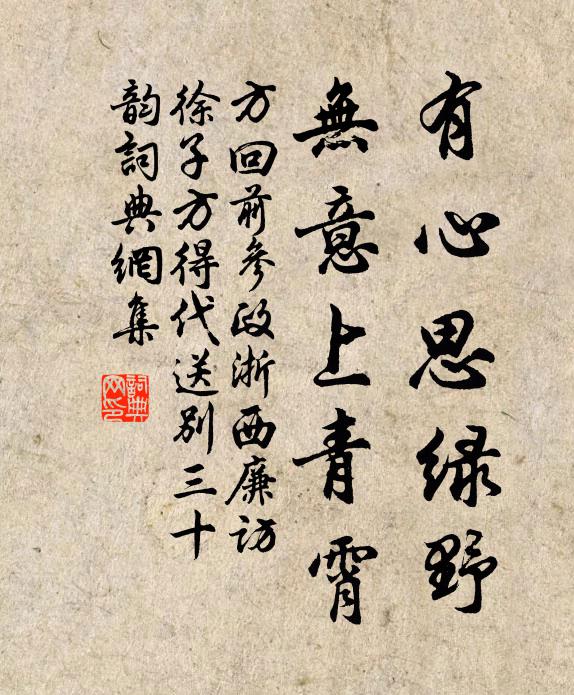 有心思绿野
無意上青霄
方回前參政浙西廉访
徐子方得代送别三十
韵詞典網集
詞典网印